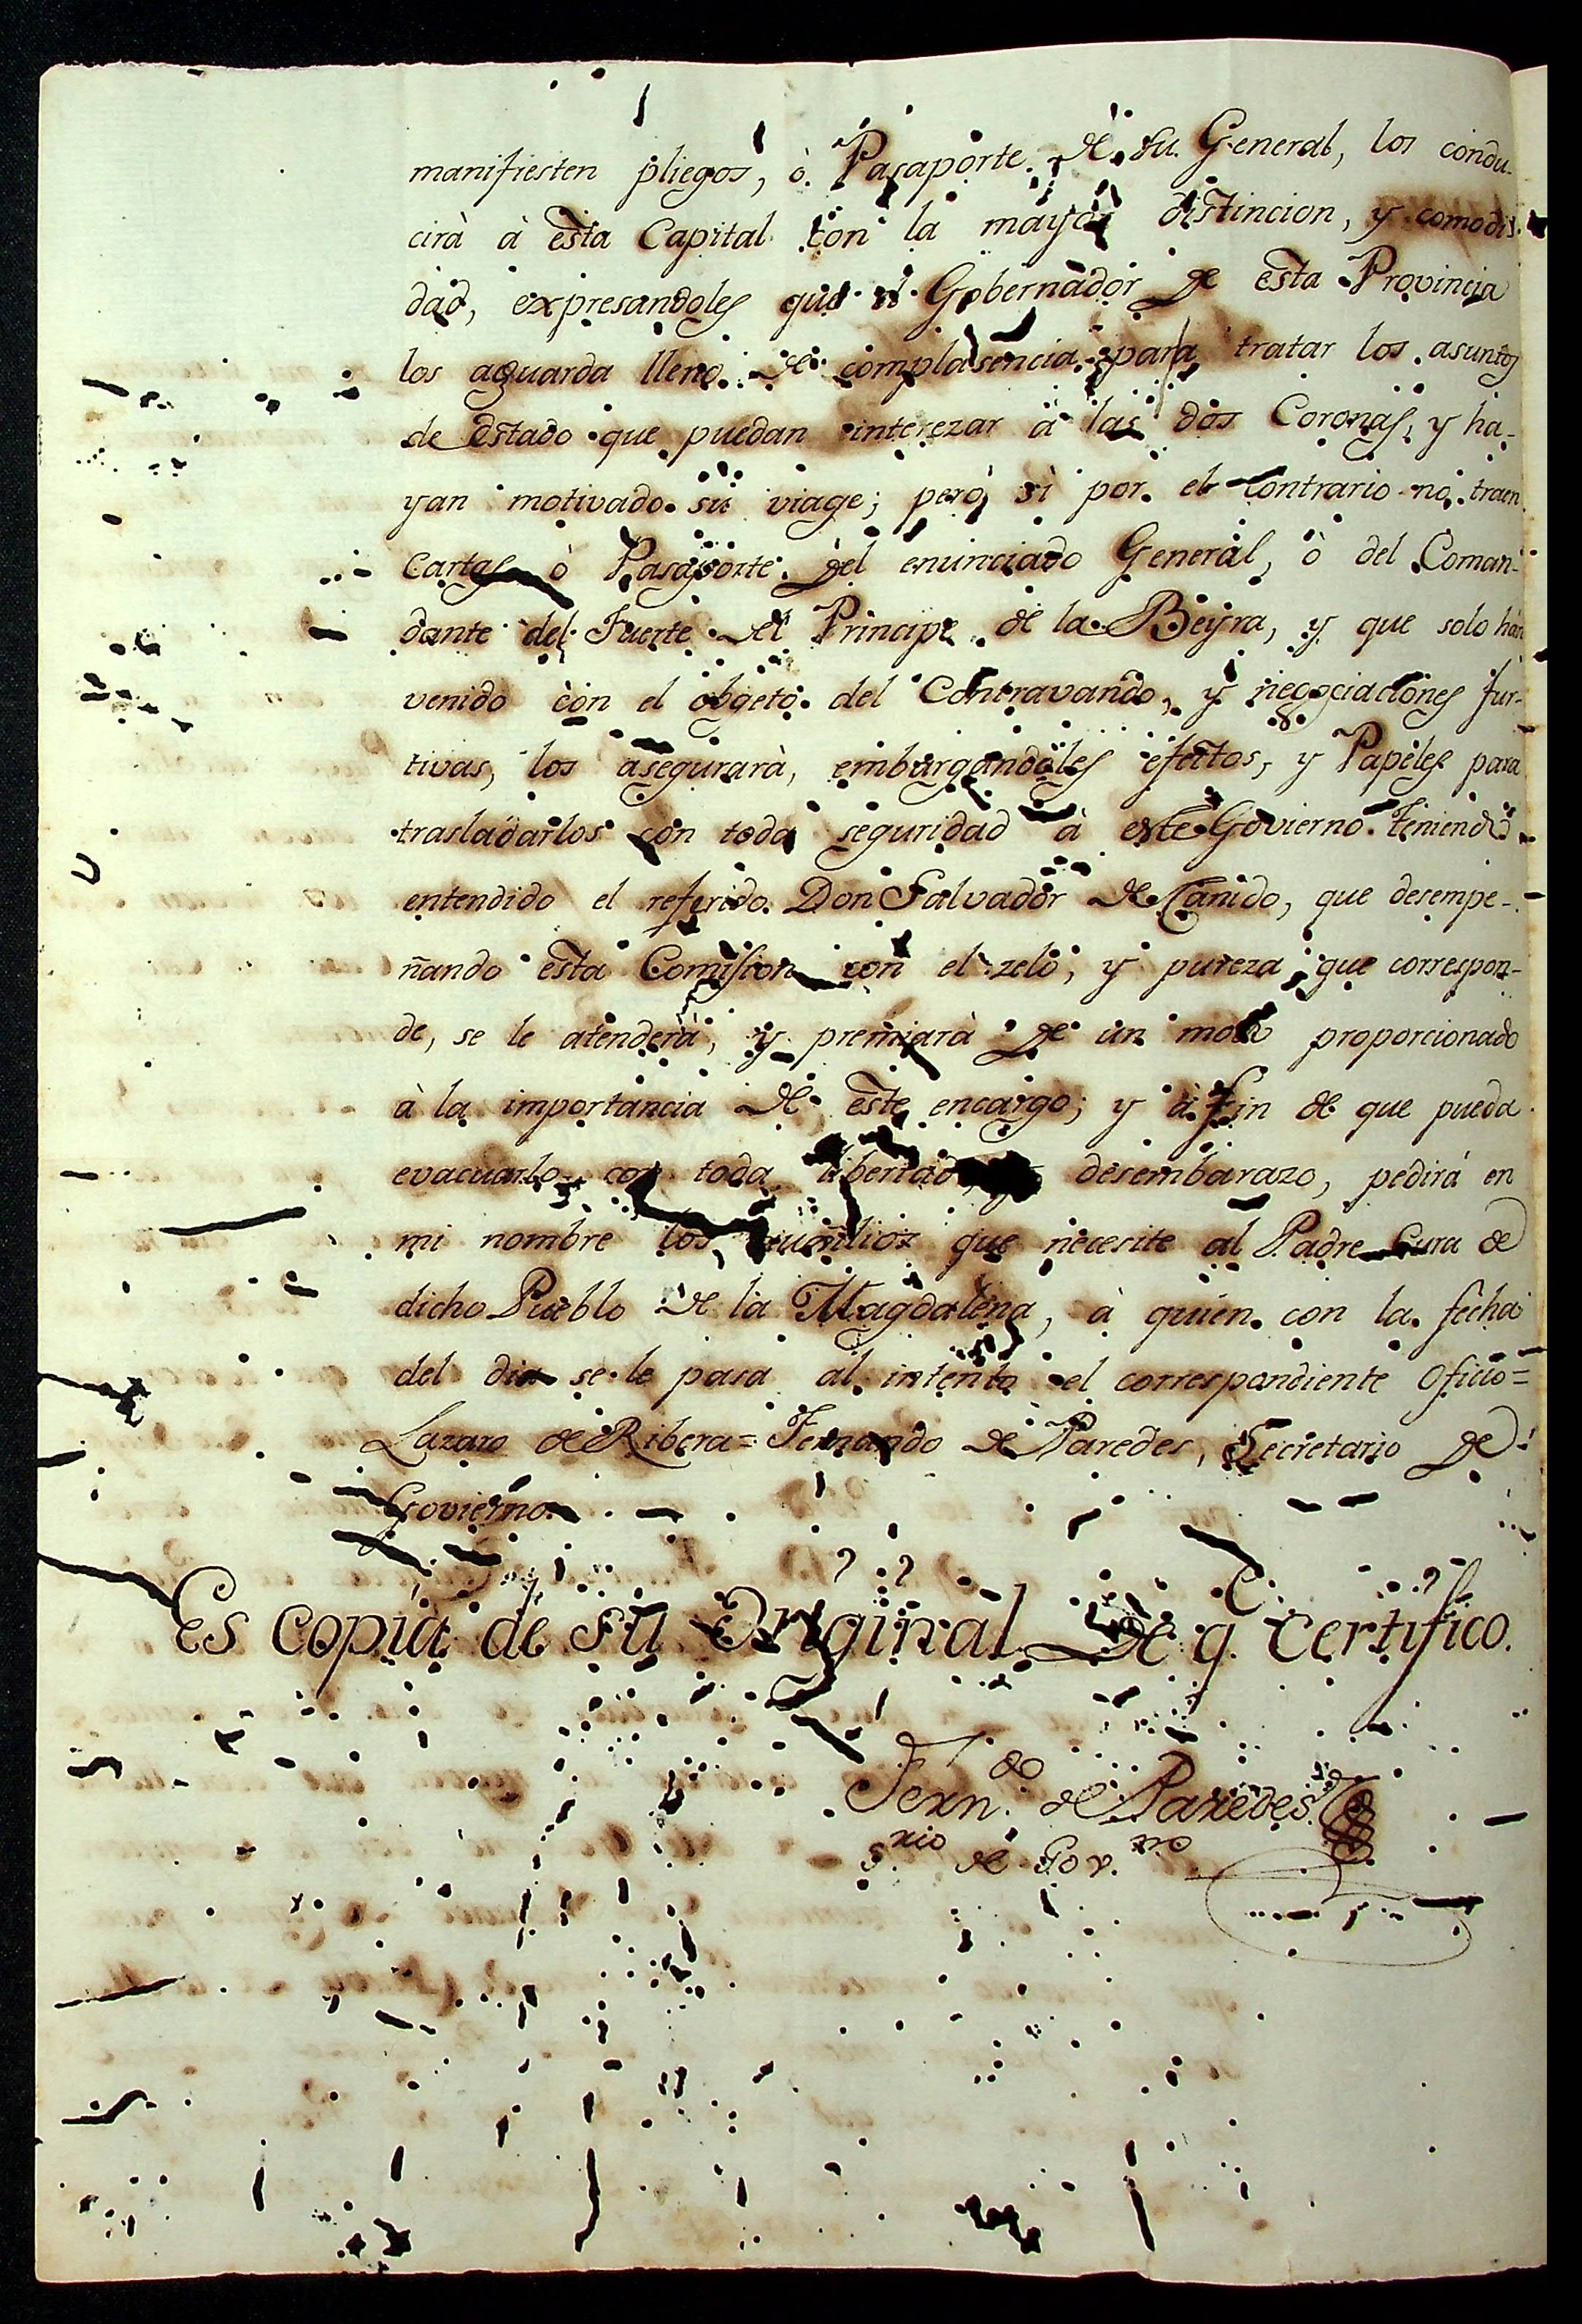 manifiesten pliegos, ò Pasaporte de su General, los condu-
cirà à esta Capital con la mayor distincion, y comodi-
dad, expresandoles que el Gobernador de esta Provincia
los aguarda lleno de complasencia para tratar los asuntos
de Estado que puedan interezar à las dos Coronas, y ha-
yan motivado su viage; però, sì por el contrario no traen
Cartas ò Pasaporte del enunciado General, ò del Coman-
dante del Fuerte del Principe de la Beyra, y que solo hán
venido con el obgeto del Contravando, y negociaciones fur-
tivas, los asegurarà, embargandoles efectos, y Papeles para
trasladarlos con toda seguridad à este Govierno. Teniendo
entendido el referido Don Salvador de Canido, que desempe-
ñando esta Comision con el zelo, y pureza que correspon-
de, se le atenderà, y premiarà de un modo proporcionado
à la importancia de este encargo; y à fin de que pueda
evacuarlo con toda libertad, y desembarazo, pedirá en
mi nombre los auxilios que necesite al Padre Cura de
dicho Pueblo de la Magdalena, à quien con la fecha
del dia se le pasa al intento el correspondiente Oficio=
Lazaro de Ribera= Fernando de Paredes, Secretario de
Govierno.
Es copia de su Original de q. certifico.
Fern.do de Paredes
S.rio de Gov.no